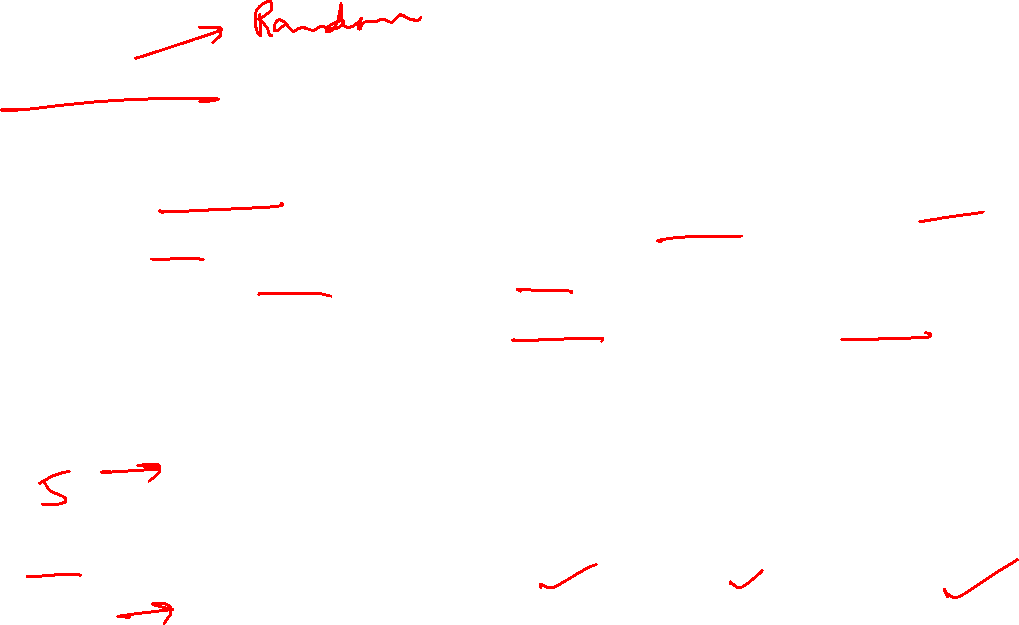 → Random
S →
→
✓ ✓ ✓